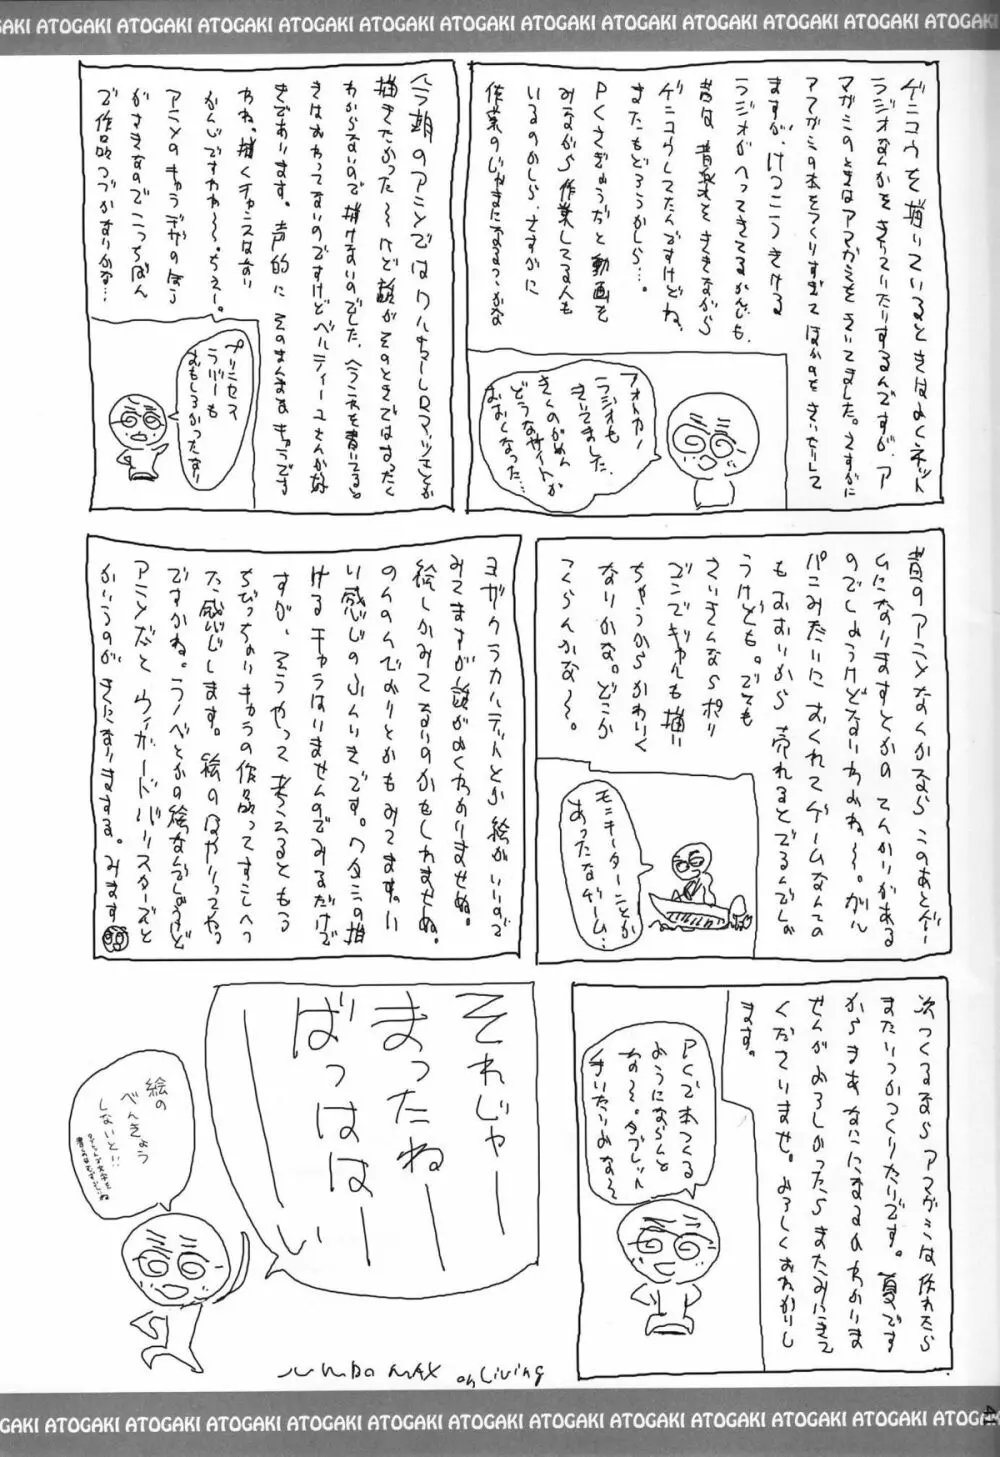 ATOGAKI ATOGAKI ATOGAKI ATOGAKI ATOGAKI ATOGAKI ATOGAKI ATOGAKI
ゲンコウを描いているときはよくネット
ラジオなんかをきいていたりするんですが、ア
マガミのときはアマガミをきいてました。さすがに
アマガミの本をつくりすぎてほかのをきいたりして
ますが、けっこうきける
ラジオがへってきてるかんじも、
昔は音楽をききながら
ゲンコウしてたんですけどね、
またもどろうかしら…。
PCさぎょうだと動画を
みながら作業してる人も
いるのかしら、さすがに
作業のじゃまになるっつかな
フォトカノ
ラジオも
きいてました。
きくのがめん
どうなサイトが
おおくなった…
今期のアニメでは
描きたかった〜けど
わからないので描けないのでした、
きはおわってないのですけどベルティーユさんが好
きであります。声的にそのまんまなキャラです
わね。描くチャンスはない
かんじですわね〜。ちぇー。
アニメのキャラデザのほう
がすきなのでこっちばん
で作品つづかないかな…
プリンセス
ラバーも
おもしろかったなり
昔のアニメなんかなら このあとゲー
ムになりますとかの てんかいがある
のでしょうけどないわよね〜。ガル
パンみたいにおくれてゲームなんての
もおそいから 売れるとでるんでしょ
うけども。でも
さいきんなら
ゲンでギャルも描い
ちゃうからかわいく
なりかな。どこか
つくらんかな〜。
モンキーターンとか
あったなゲーム…
ヨザクラカルテットとか 絵がいいので
みてますが話がよくわかりませぬ。
絵しかみてないのかもしれませぬ。
のんのんびよりとかもみてます。い
い感じのふんいきです。ワタシの描
けるキャラはいませんのでみるだけで
すが、そうやって考えるともう
ちびっちゃいキャラの作品ってすこしへっ
た感じします。絵のはやりってやつ
ですかね。ラノベとかの絵なんでしょうけど
アニメだとウィザードバリスターズと
かいうのがきになりまする。みます
次つくるなら アマガミは作れたら
またいつかつくりたいです。夏です
からまあなにになるかわかりま
せんがよろしかったらまたみにきて
くださいませ。よろしくおねがいし
ます。
PCで本つくる
ようにならんと
な〜。タブレット
それじゃー
まったねー
ばっはは
ーい
絵の
べんきょう
しないと…
JUMBO MAX
on Living
ATOGAKI ATOGAKI ATOGAKI ATOGAKI ATOGAKI ATOGAKI ATOGAKI ATOGAKI
41